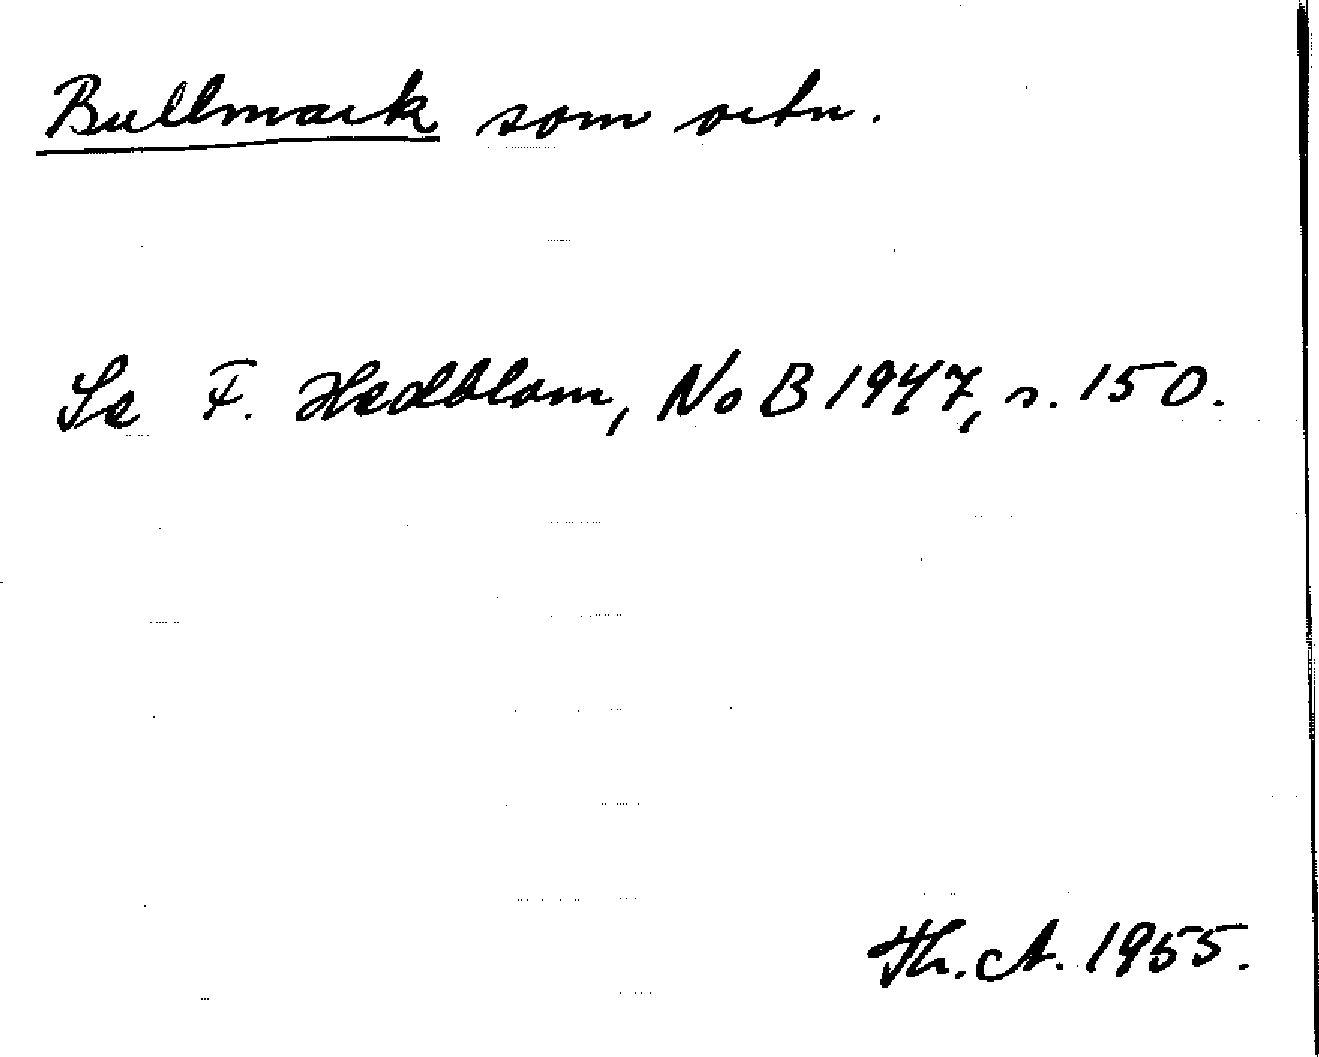 Bullmark som ortn.
Se F. Hedblom, NoB 1947, s. 150.
Th. A. 1955.